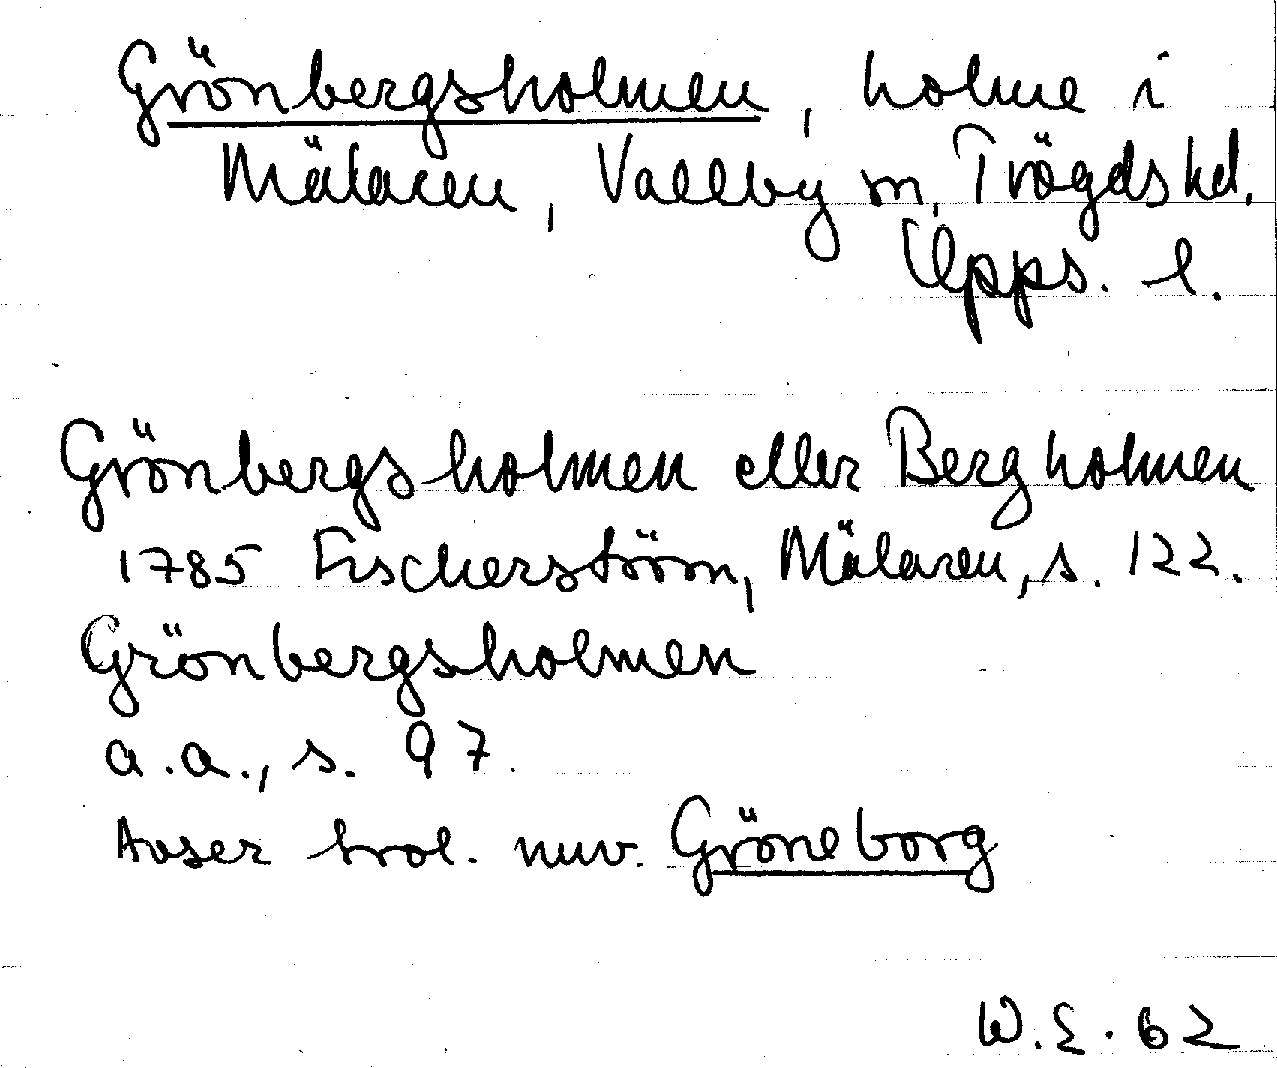 Grönbergsholmen, holme i
Mälaren, Vallby sn, Trögds hd.
Upps. l.
Grönbergsholmen eller Bergholmen
1785 Fischerström, Mälaren, s. 122.
Grönbergsholmen
a.a., s. 97.
Avser trol. nuv. Gröneborg
W.E. 62